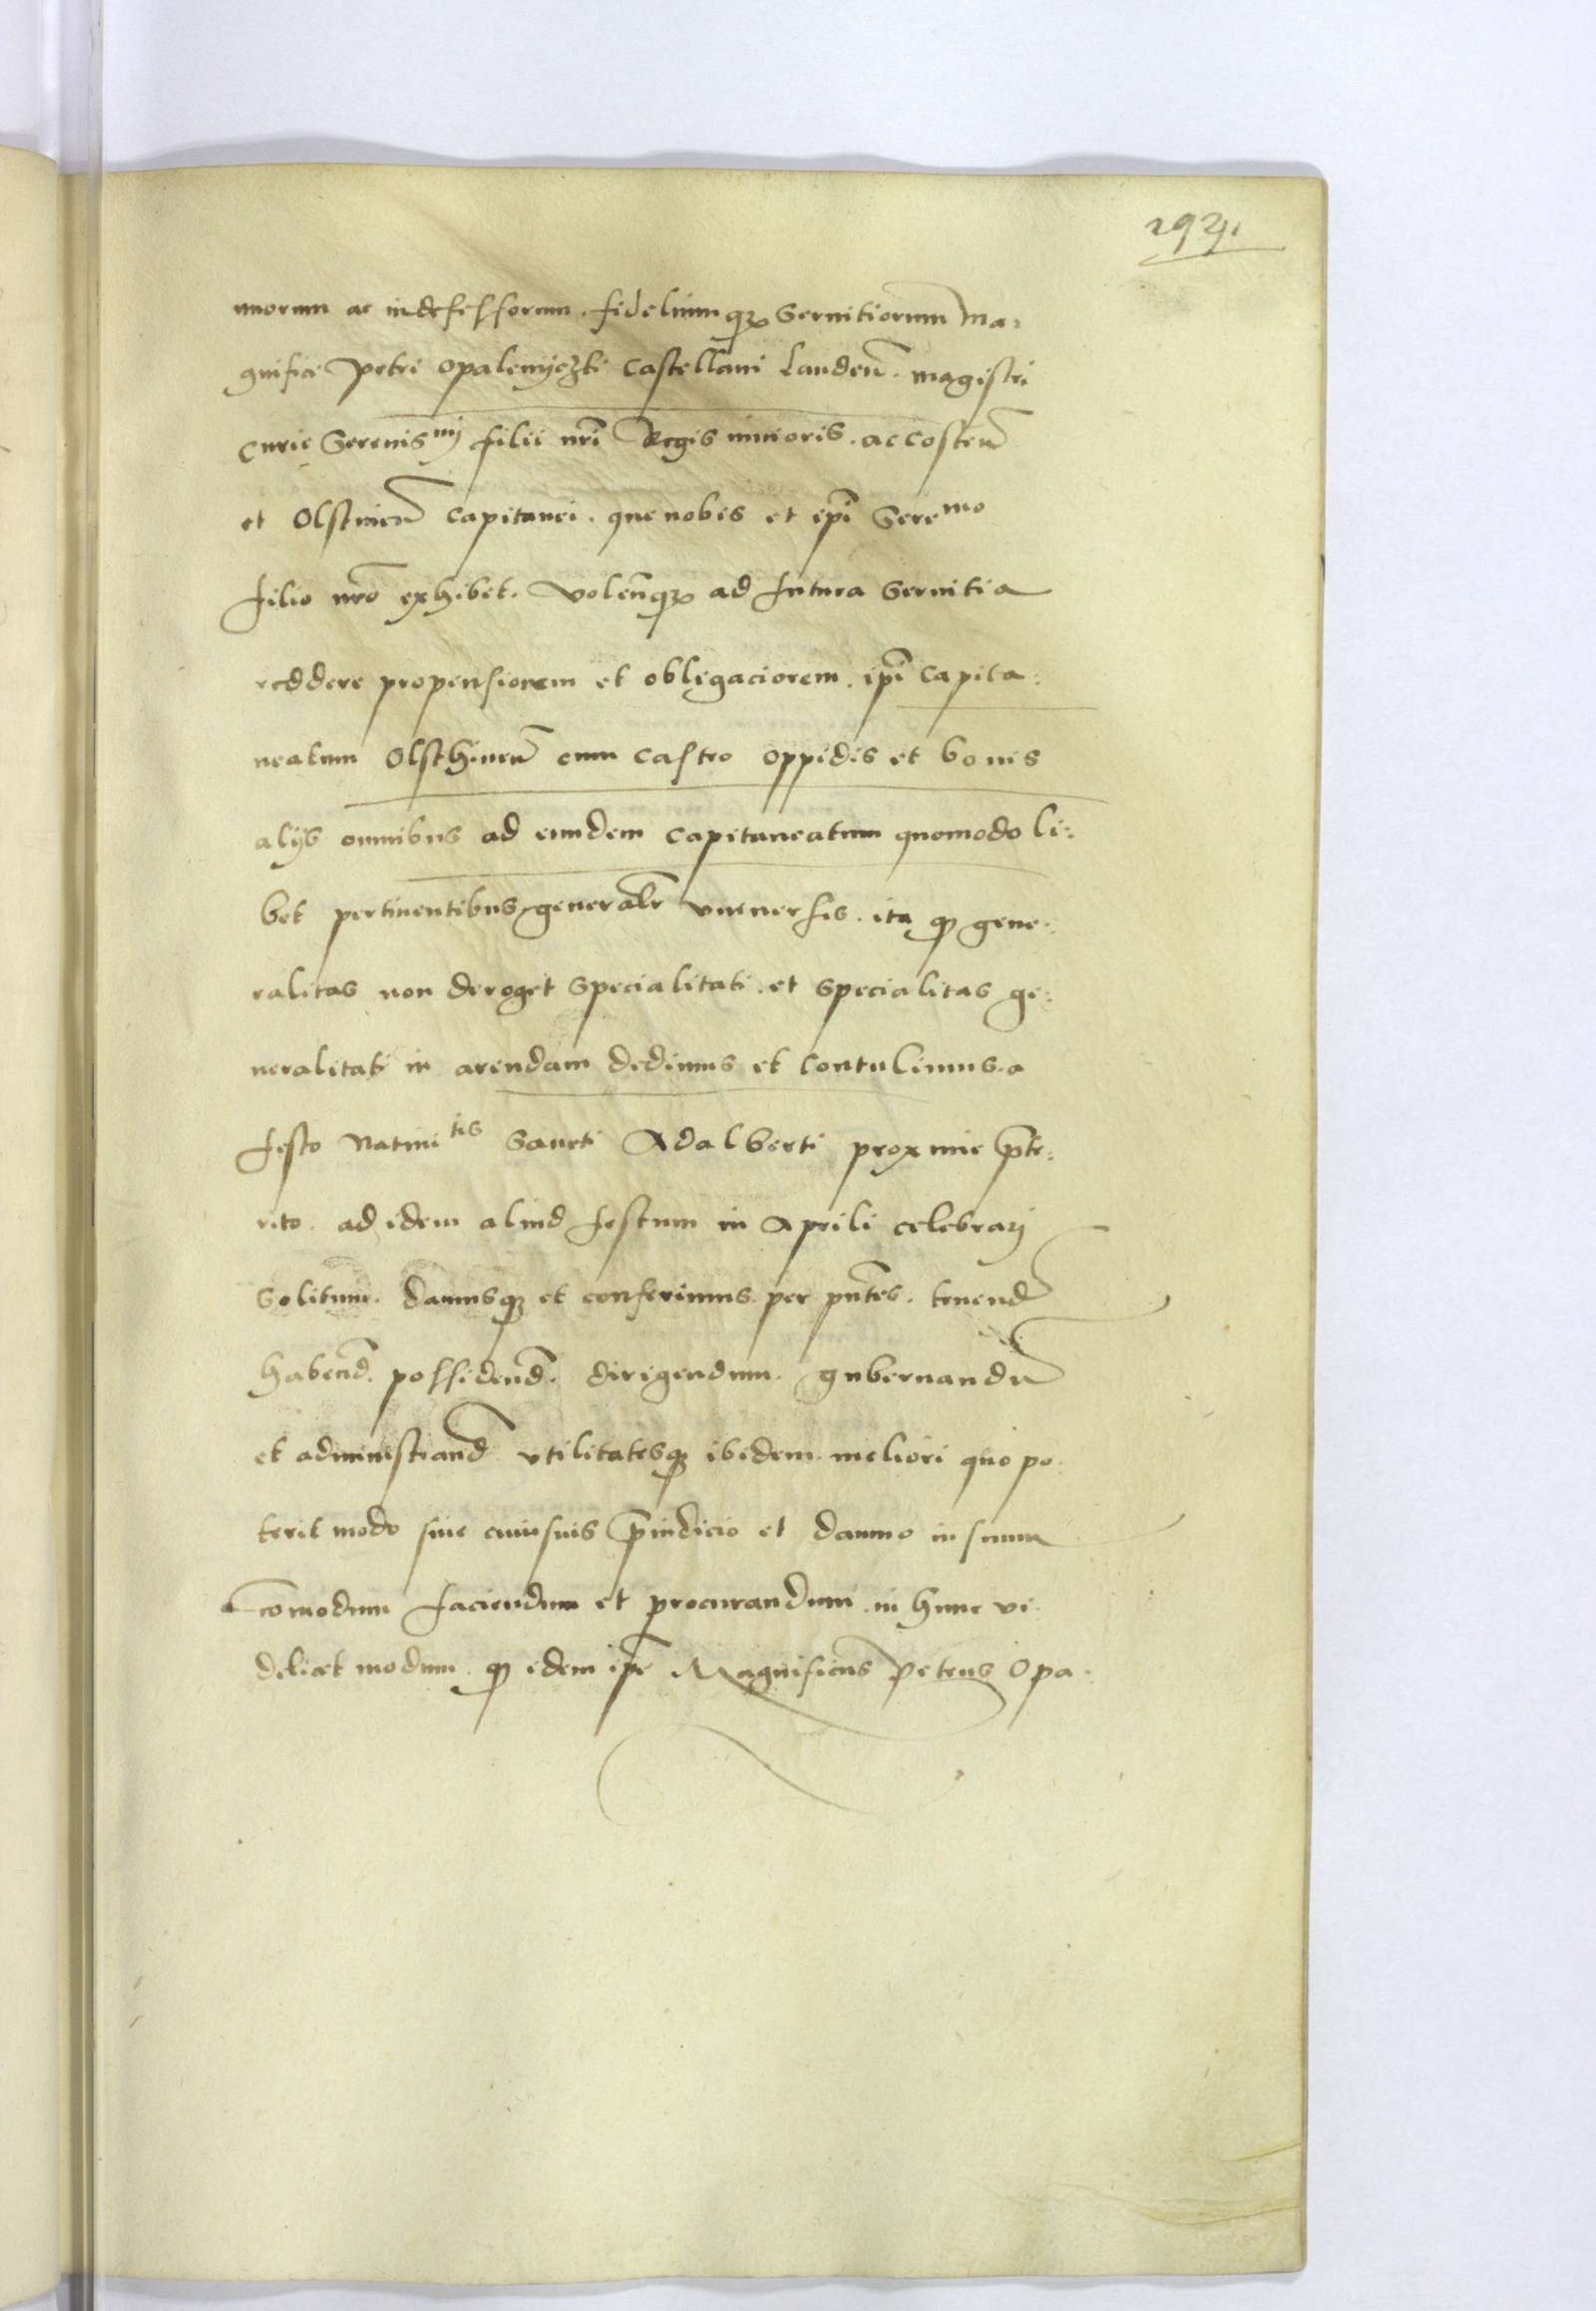 nuorum ac indefessorum. fideliumq₃ servitiorum Ma:
gnifici Petri Opalenyczki Castellani Landeñ. magistri
curie Serenis^mi filii nrĩ Regis iunioris. ac Costeñ
et Olstineñ capitanei. que nobis et ipi Sere^mo
filio nrõ exhibet. volenq₃ ad futura servitia
reddere propensiorem et obligaciorem. ipi capita:
neatum Olsthineñ cum castro oppidis et bonis
alijs omnibus ad eundem capitaneatum quomodo li:
bet pertinentibus generalr̃ universis. ita q gene:
ralitas non deroget specialitati. et specialitas ge:
neralitati in arendam dedimus et contulimus. a
festo Nativi^tis Sancti Adalberti proxime p̃te:
rito. ad idem aliud festum in Aprili celebrarj
solitum. damusq₃ et conferimus. per pñtes. tenend
habend. possidend. dirigendum. gubernandũ
et administrand utilitatesq₃ ibidem meliori quo po:
terit modo sine cuiusvis p̃iudicio et damno in suum
com̃odum faciendum et procurandum in hunc vi:
delicet modum. q idem ipe Magnificus Petrus Opa: